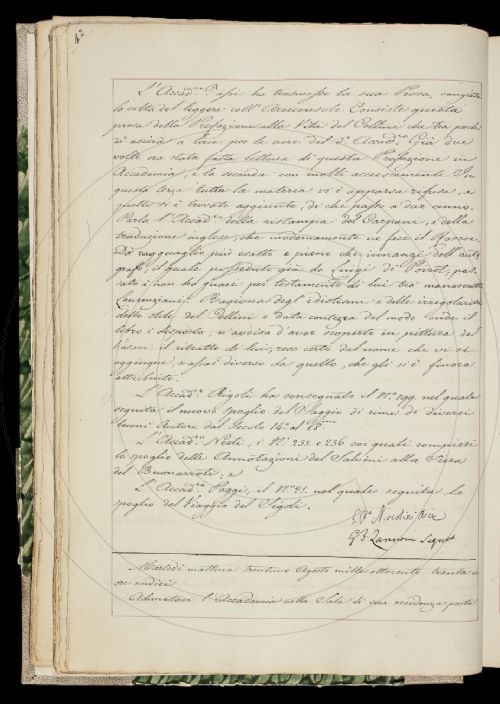 42
L'Accad.co Tassi ha trasmesso la sua Prosa, cangiata
la volta del leggere coll'Arciconsolo. Consiste questa
prosa della Prefazione alla Vita del Cellini che tra pochi
dì uscirà a luce per le cure del d.o Accad.co Già due
volte era stata fatta lettura di questa Prefazione in
Accademia, e la seconda con molti accrescimenti. In
questa terza tutta la materia vi è apparsa rifusa, e
molto vi s'è trovato aggiunto, di che passo a dar conto.
Parla l'Accad.co della ristampa del Carpani, e della
traduzione inglese, che modernamente ne fece il Roscoe.
Dà ragguaglio più esatto e pieno che innanzi dell'auto-
grafo, il quale posseduto già da Luigi de Poirot, pas-
sato è non ha guari per testamento di lui tra' manoscritti
Laurenziani. Ragiona degl'idiotismi e delle irregolarità
dello stile del Cellini e data contezza del modo onde il
libro è disposto, n'avvisa d'aver scoperto in pittura del
Vasari il ritratto di lui, reso certo dal nome che vi si
aggiunge, e assai diverso da quello, che gli si è finora
attribuito.
L'Accad.co Rigoli ha consegnato il N.o 199. nel quale
seguita il nuovo spoglio del Saggio di rime di diversi
buoni Autori dal Secolo 14.o al 18.mo
L'Accad.co Nesti, i N.i 235. e 236 coi quali compiesi
lo spoglio delle Annotazioni del Salvini alla Fiera
del Buonarroti; e
L'Accad.co Poggi, il N.o 21. nel quale seguita lo
spoglio del Viaggio del Sigoli.
G. B.a Niccolini Arc.
G. B. Zannoni Segret.
Martedì mattina trentuno Agosto mille ottocento trenta a
ore undici
Adunatasi l'Accademia nella Sala di sua residenza posta